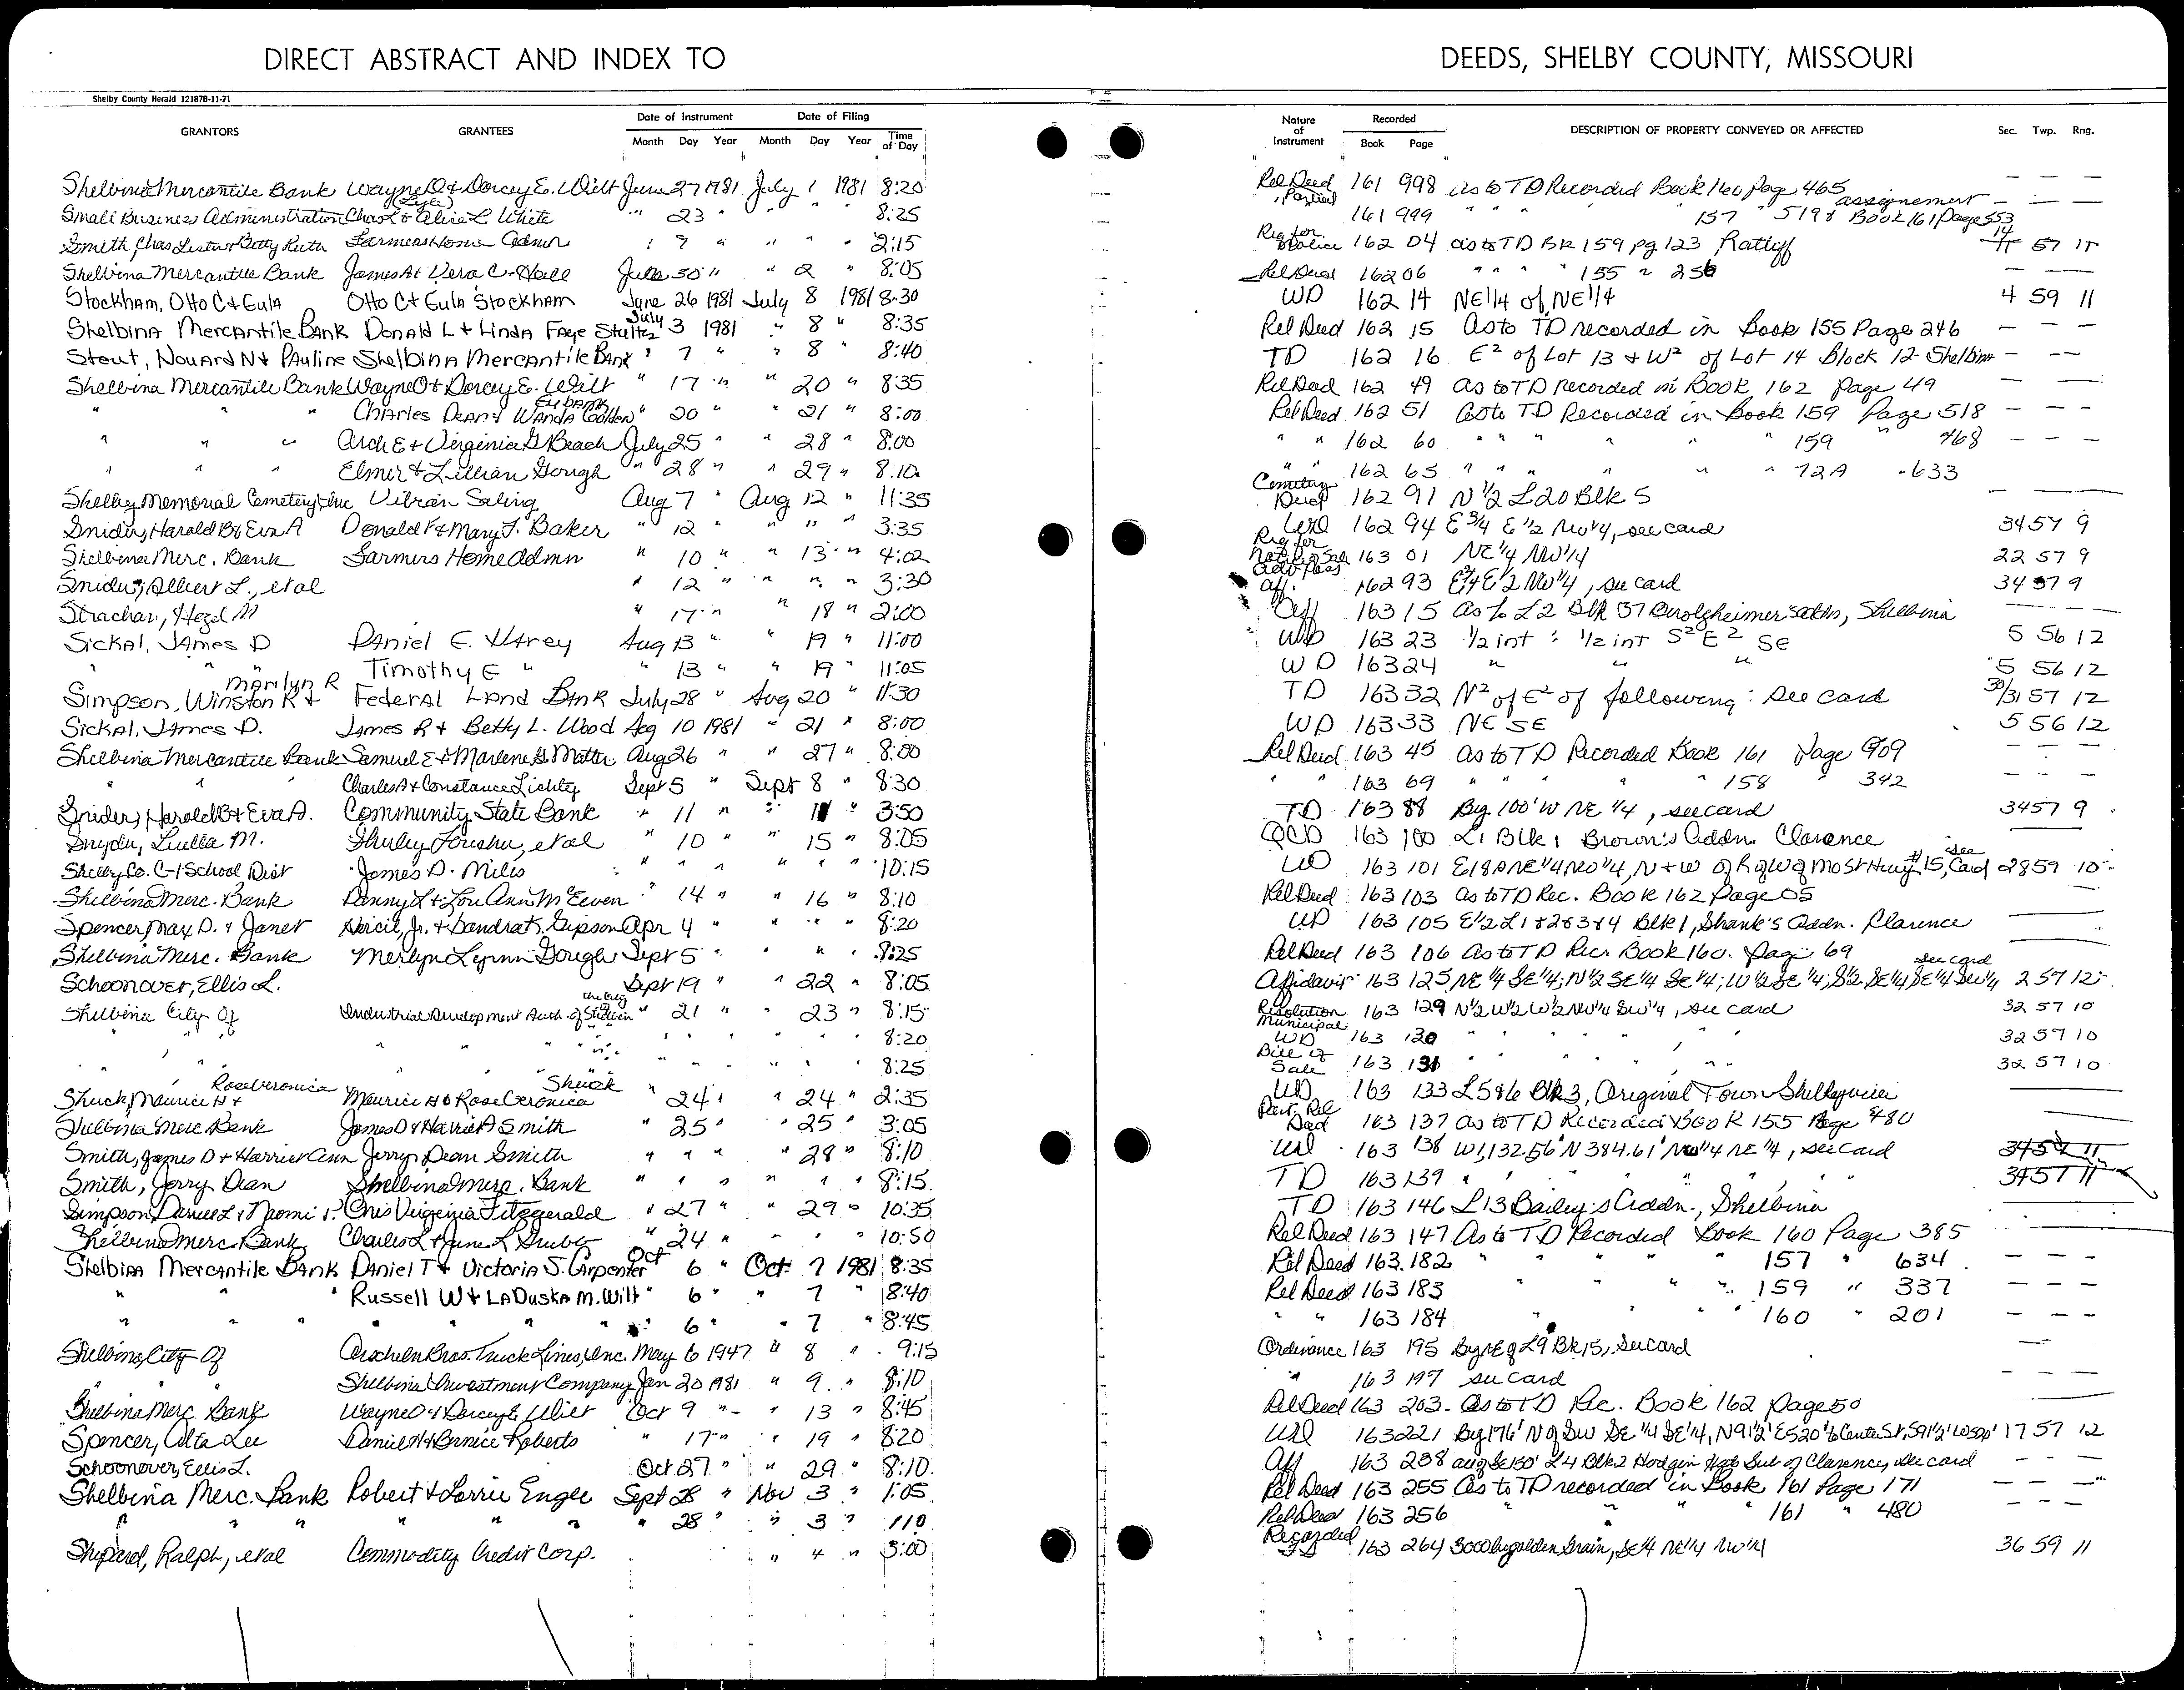 DIRECT ABSTRACT AND INDEX TO
Shelby County Herald 12187B-11-71
GRANTORS GRANTEES Date of Instrument Date of Filing
Month Day Year Month Day Year Time of Day
Shelbina Mercantile Bank Wayne O & Dorcey E. Wilt June 27 1981 July 1 1981 8:20
(Lyle)
Small Business Administration Chas L & Alice L White " 23 " " " " 8:25
Smith, Chas Lester & Betty Ruth Farmers Home Admn " 9 " " " " 2:15
Shelbina Mercantile Bank James A & Vera C. Hall June 30 " " 2 " 8:05
Stockham, Otto C & Eula Otto C & Eula Stockham June 26 1981 July 8 1981 8:30
Shelbina Mercantile Bank Donald L & Linda Faye Stultz July 3 1981 " 8 " 8:35
Stout, Novard N & Pauline Shelbina Mercantile Bank " 7 " " 8 " 8:40
Shelbina Mercantile Bank Wayne O & Dorcey E. Wilt " 17 " " 20 " 8:35
Eubank
" " " Charles Dean & Wanda Golden " 20 " " 21 " 8:00
" " " Arch E & Virginia G Beach July 25 " " 28 " 8:00
" " " Elmer & Lillian Gough " 28 " " 29 " 8:10
Shelby Memorial Cemetery Inc Vibrian Saling Aug 7 " Aug 12 " 11:35
Snider, Harold B & Eva A Donald F & Mary J. Baker " 12 " " " 3:35
Shelbina Merc. Bank Farmers Home Admn " 10 " " 13 " 4:02
Snider, Albert L., etal " 12 " " " " 3:30
Strachan, Hazel M " 17 " " 18 " 2:00
Sickal, James D Daniel E. Harey Aug 13 " " 19 " 11:00
" " " Timothy E " " 13 " " 19 " 11:05
Marilyn R
Simpson, Winston R & Federal Land Bank July 28 " Aug 20 " 11:30
Sickal, James D. James R & Betty L. Wood Aug 10 1981 " 21 " 8:00
Shelbina Mercantile Bank Samuel E & Marlene G. Matter Aug 26 " " 27 " 8:00
" " Charles A & Constance Lichty Sept 5 " Sept 8 " 8:30
Snider, Harold B & Eva A. Community State Bank " 11 " " 11 " 3:50
Snyder, Luella M. Shirley Foreshu, etal " 10 " " 15 " 8:05
Shelby Co. C-1 School Dist James D. Miles " " " " " " 10:15
Shelbina Merc. Bank Danny L & Lou Ann McEwen " 14 " " 16 " 8:10
Spencer, Max D. & Janet Hircil, Jr. & Sandra K. Gipson Apr 4 " " " " 8:20
Shelbina Merc. Bank Merlyn Lynn Gough Sept 5 " " " " 8:25
Schoonover, Ellis L. Sept 19 " " 22 " 8:05
Shelbina City Of Industrial Development Auth. of the City Shelbina " 21 " " 23 " 8:15
" " " " " " " " " 8:20
" " " " " " " " 8:25
Rose Veronica Shuck
Shuck, Maurice H & Maurice H & Rose Veronica " 24 " " 24 " 2:35
Shelbina Merc Bank James D & Harriet A Smith " 25 " " 25 " 3:05
Smith, James D & Harriet Ann Jerry Dean Smith " " " " 28 " 8:10
Smith, Jerry Dean Shelbina Merc. Bank " " " " " " 8:15
Simpson, Daniel L & Naomi Oris Virginia Fitzgerald " 27 " " 29 " 10:35
Shelbina Merc. Bank Charles L & June L Gruber " 24 " " " " 10:50
Shelbina Mercantile Bank Daniel T & Victoria S. Carpenter Oct 6 " Oct. 7 1981 8:35
" " " Russell W & LaDuska M. Wilt " 6 " " 7 " 8:40
" " " " " " " 6 " " 7 " 8:45
Shelbina, City Of Orscheln Bros. Truck Lines, Inc. May 6 1947 " 8 " 9:15
" " Shelbina Investment Company Jan 20 1981 " 9 " 8:10
Shelbina Merc. Bank Wayne O & Dorcey E Wilt Oct 9 " " 13 " 8:45
Spencer, Alta Lee Daniel H & Bernice Roberts " 17 " " 19 " 8:20
Schoonover, Ellis L. Oct 27 " " 29 " 8:10
Shelbina Merc. Bank Robert & Lorrie Engle Sept 28 " Nov 3 " 1:05
" " " " " " " 28 " " 3 " 1:10
Shepard, Ralph, etal Commodity Credit Corp. " 4 " 3:00
DEEDS, SHELBY COUNTY, MISSOURI
Nature of Instrument Recorded DESCRIPTION OF PROPERTY CONVEYED OR AFFECTED Sec. Twp. Rng.
Book Page
Rel Deed 161 998 as to TD Recorded Book 160 Page 465 — — —
Partial 161 999 " " " " 157 " 519 & assignement Book 161 Page 553 — — —
Req for Notice 162 04 as to TD Bk 159 pg 123 Ratliff 14 57 11
Rel Deed 162 06 " " " " 155 " 256 — —
WD 162 14 NE 1/4 of NE 1/4 4 59 11
Rel Deed 162 15 As to TD recorded in Book 155 Page 246 — — —
TD 162 16 E² of Lot 13 & W² of Lot 14 Block 12 Shelbina — — —
Rel Deed 162 49 as to TD recorded in Book 162 Page 49 — — —
Rel Deed 162 51 as to TD Recorded in Book 159 Page 518 — — —
" " 162 60 " " " " " 159 " 468 — — —
" " 162 65 " " " " " " 72A " 633
Cemetery Deed 162 91 N 1/2 L20 Blk 5
WD 162 94 E 3/4 E 1/2 NW 1/4, see card 34 57 9
Req for Notice of Sale 163 01 NE 1/4 NW 1/4 22 57 9
Aff. 162 93 E 3/4 E 1/2 NW 1/4, see card 34 57 9
Aff 163 15 as to L2 Blk 37 Durolzheimer's addn, Shelbina
WD 163 23 1/2 int : 1/2 int S² E² SE 5 56 12
WD 163 24 " " " 5 56 12
TD 163 32 N² of E² of following : see card 30/31 57 12
WD 163 33 NE SE 5 56 12
Rel Deed 163 45 as to TD Recorded Book 161 Page 909 — — —
" " 163 69 " " " " 158 " 342 — — —
TD 163 88 Bg 100' W NE 1/4, see card 34 57 9
QCD 163 100 L1 Blk 1 Brown's Addn. Clarence
WD 163 101 E 18 A NE 1/4 NW 1/4, N & W of R of W of Mo St Hwy #15, see Card 28 59 10
Rel Deed 163 103 as to TD Rec. Book 162 Page 05
WD 163 105 E 1/2 L1 & 2 & 3 & 4 Blk 1, Shank's Addn. Clarence
Rel Deed 163 106 as to TD Rec. Book 160. Page 69
see card
Affidavit 163 125 NE 1/4 SE 1/4; N 1/2 SE 1/4 SE 1/4; W 1/2 SE 1/4; S 1/2 SE 1/4 SE 1/4 SW 1/4 2 57 12
Resolution 163 129 N 1/2 W 1/2 W 1/2 NW 1/4 SW 1/4, see card 32 57 10
Municipal WD 163 130 " " " " " 32 57 10
Bill of Sale 163 131 " " " " " 32 57 10
WD 163 133 L5 & 6 Blk 3, Original Town Shelbyville
Part. Rel Deed 163 137 as to TD Recorded Book 155 Page 480
WD 163 138 W 1,132.56' N 384.61' NW 1/4 NE 1/4, see card 34 57 11
TD 163 139 " " " " 34 57 11
TD 163 146 L13 Bailey's Addn., Shelbina
Rel Deed 163 147 As to TD Recorded Book 160 Page 385
Rel Deed 163 182 " " " " 157 " 634 — — —
Rel Deed 163 183 " " " " 159 " 337 — — —
" " 163 184 " " " " 160 " 201 — — —
Ordinance 163 195 Bg NE of L9 Bk 15, see card
" 163 197 see card — — —
Rel Deed 163 203 As to TD Rec. Book 162 Page 50
WD 163 221 Bg 176' N of SW SE 1/4 SE 1/4, N 91 1/2' E 520' to Center St, S 91 1/2' W 520' 17 57 12
Aff 163 238 L4 Blk 2 Hodgin Sub of Clarence, see card — — —
Rel Deed 163 255 As to TD recorded in Book 161 Page 171 — — —
Rel Deed 163 256 " " " 161 " 480 — — —
Recorded 163 264 3000 bu golden Grain, SE 1/4 NE 1/4 NW 1/4 36 59 11